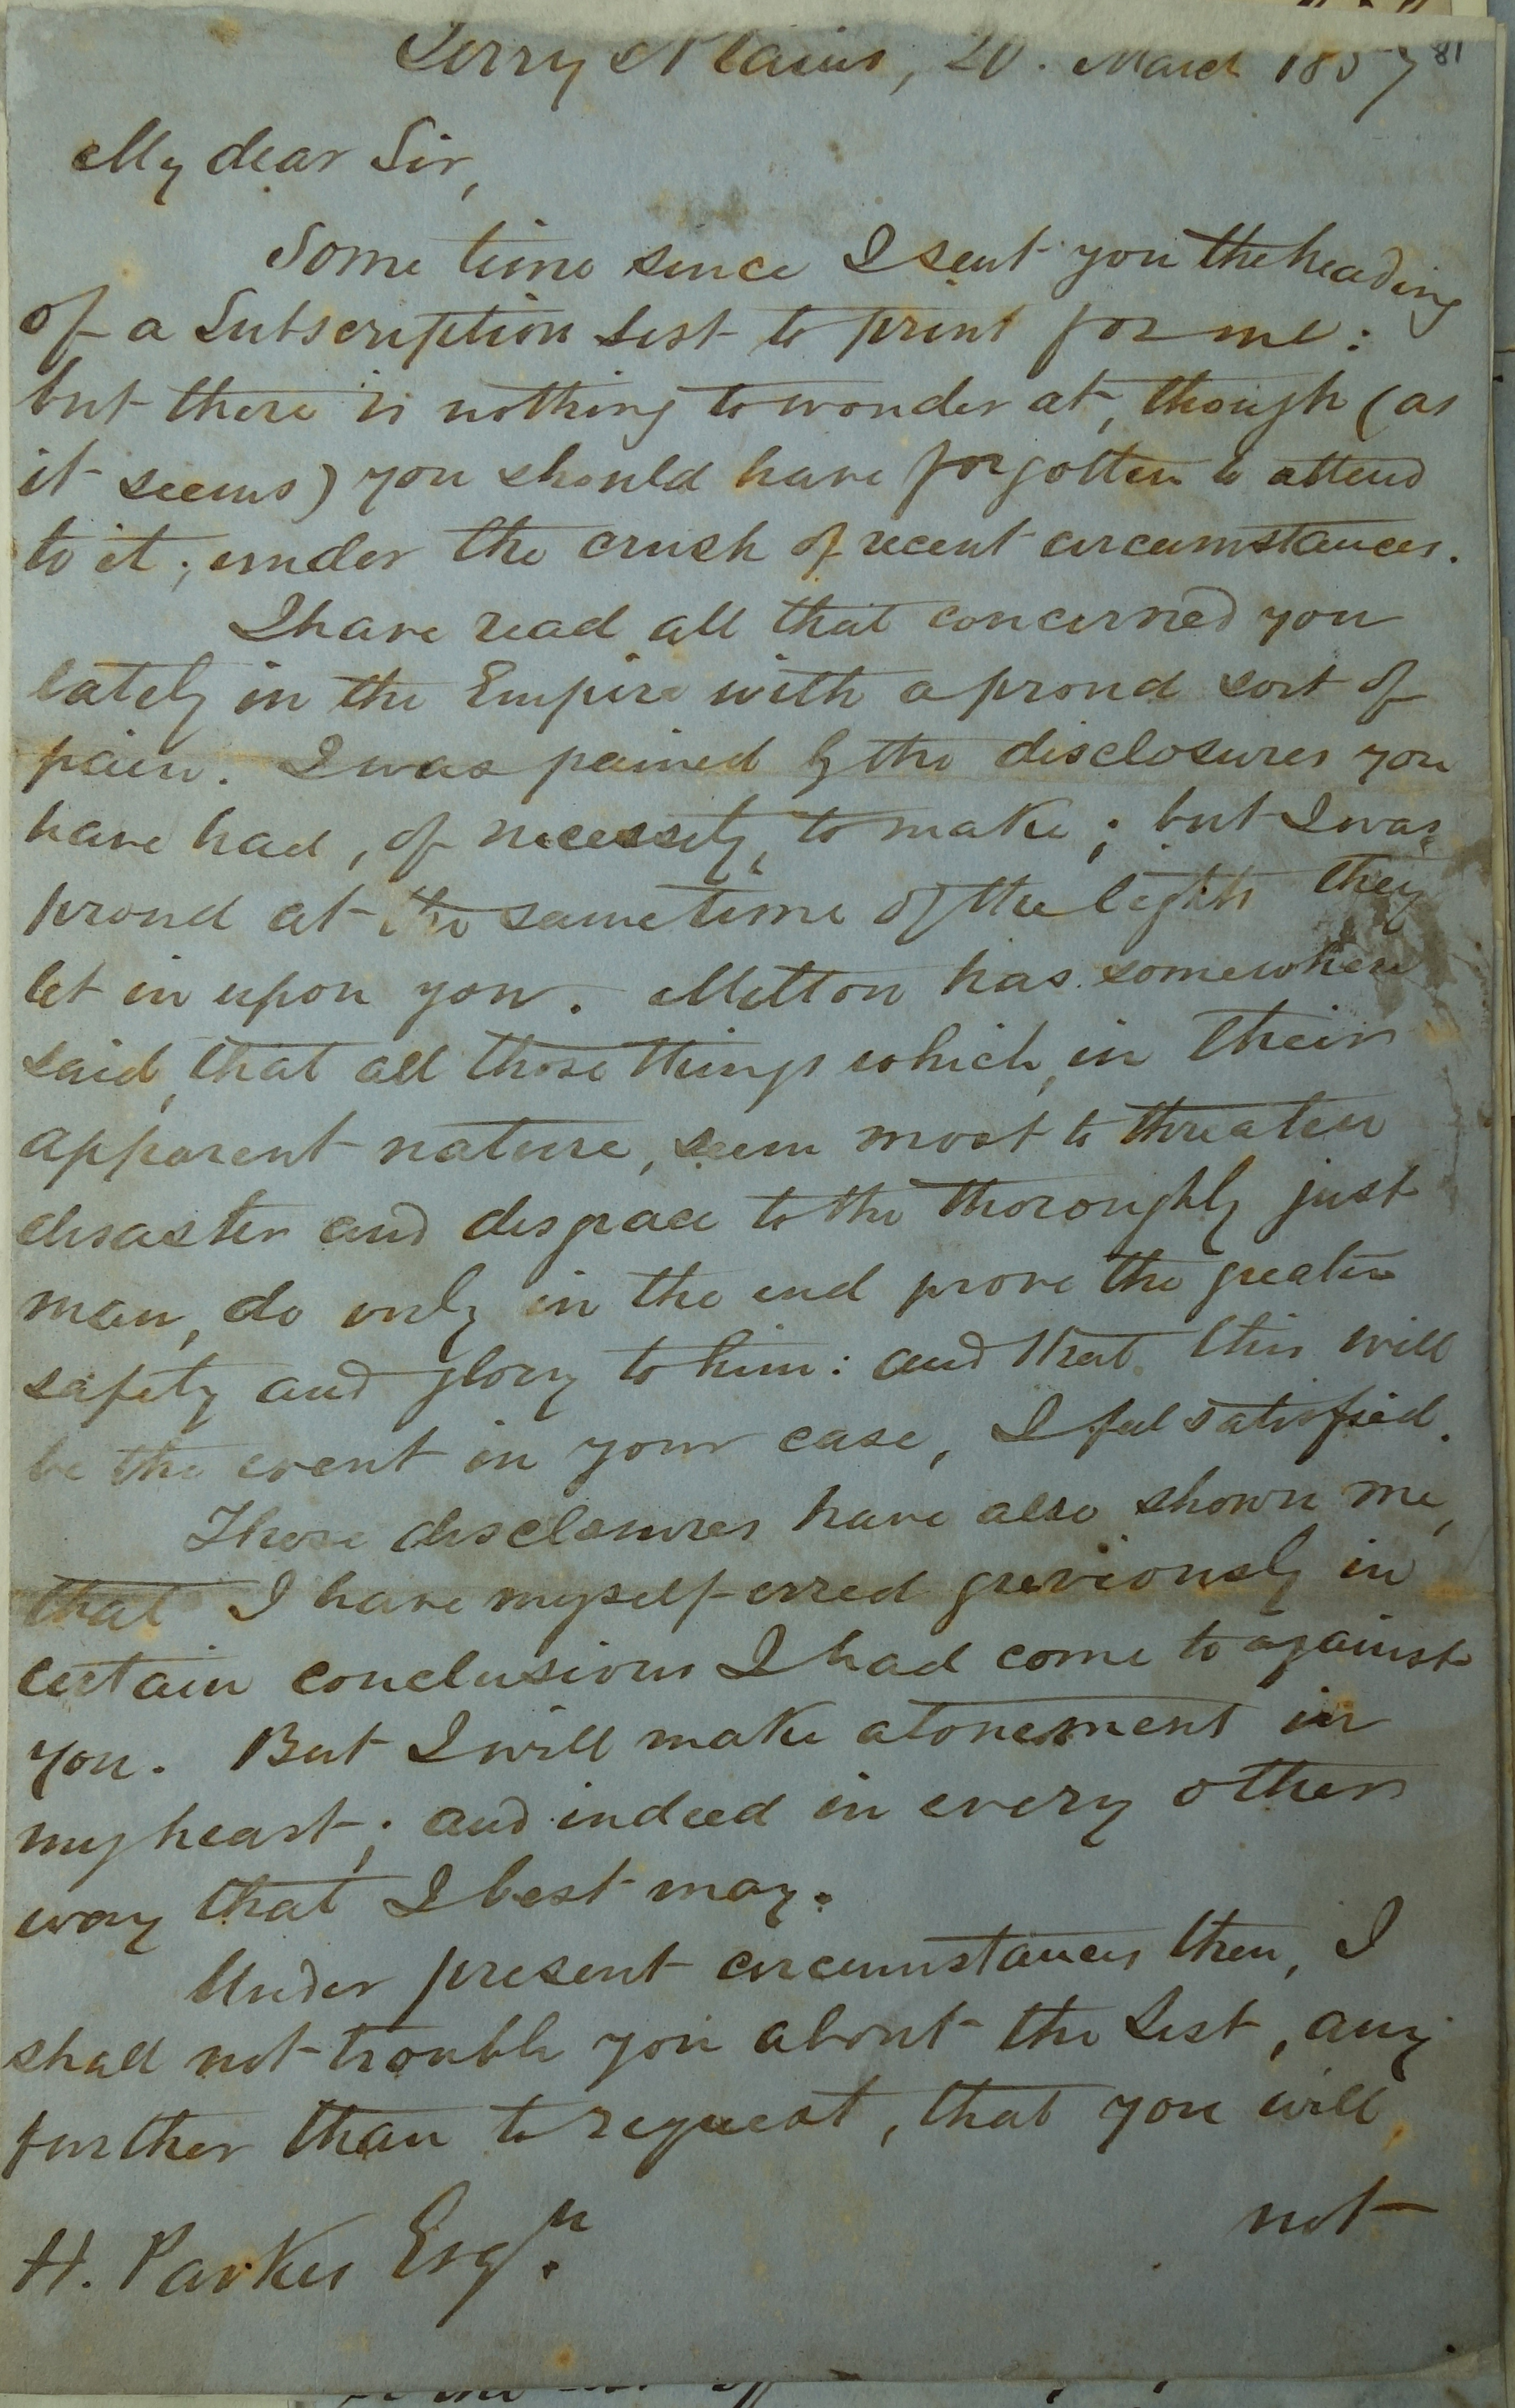 Jerry Plains, 20. March 1857
81
My dear Sir,
Some time since I sent you the heading
of a Subscription List to print for me:
but there is nothing to wonder at, though (as
it seems) you should have forgotten to attend
to it, under the crush of recent circumstances.
I have read all that concerned you
lately in the Empire with a proud sort of
pain. I was pained by the disclosures you
have had, of necessity, to make; but I was
proud at the same time of the lights they
let in upon you. Milton has somewhere
said, that all those things which, in their
apparent nature, seem most to threaten
disaster and disgrace to the thoroughly just
man, do only in the end prove the greater
safety and glory to him: and that this will
be the event in your case, I feel satisfied.
These disclosures have also shown me,
that I have myself erred greviously in
certain conclusions I had come to against
you. But I will make atonement in
my heart; and indeed in every other
way that I best may.
Under present circumstances then, I
shall not trouble you about the List, any
further than to request, that you will
not
H. Parkes Esqr.